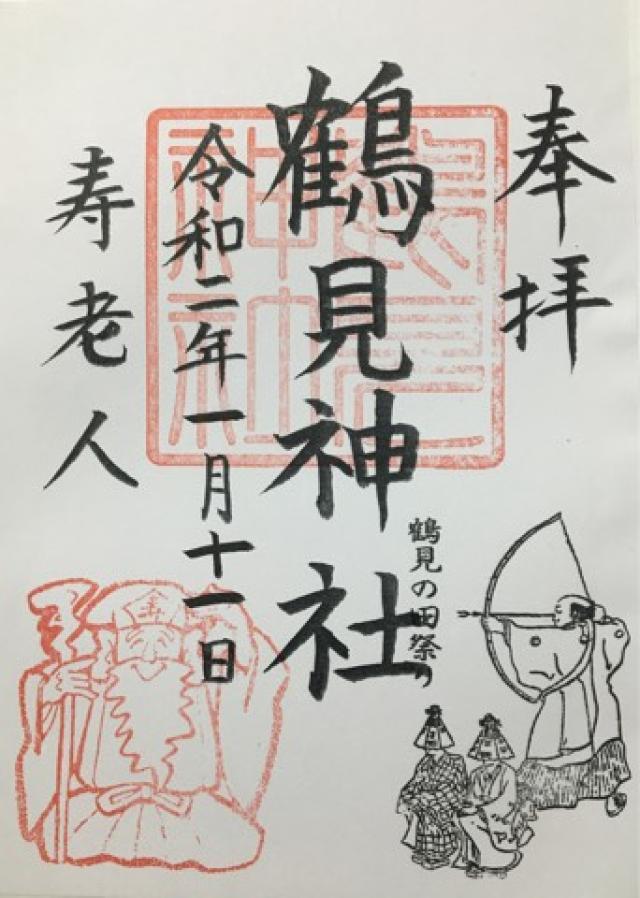 奉拝
鶴見神社
鶴見の田祭り
令和二年一月十一日
寿老人